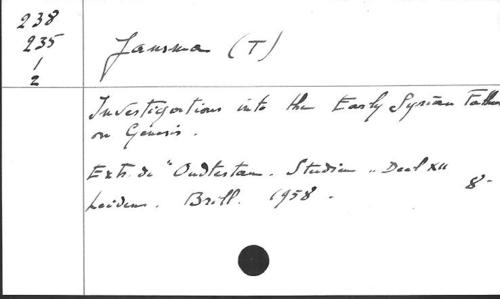 238
235
1
2
Jansma (T)
Investigations into the Early Syrian Fathers
on Genesis.
Extr. de "Oudtestam. Studien" Deel XII
Leiden. Brill. 1958. 8-